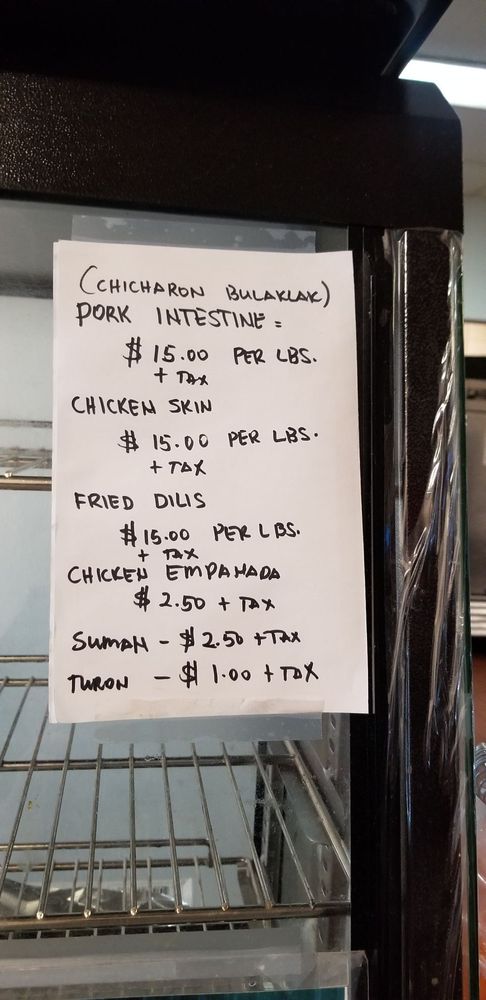 (CHICHARON BULAKLAK)
PORK INTESTINE =
$ 15.00 PER LBS.
+ TAX
CHICKEN SKIN
$ 15.00 PER LBS.
+ TAX
FRIED DILIS
$15.00 PER LBS.
+ TAX
CHICKEN EMPANADA
$ 2.50 + TAX
SUMAN - $ 2.50 + TAX
TURON - $ 1.00 + TAX